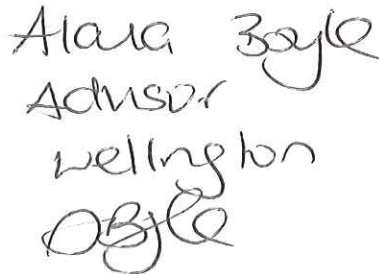 Alana Boyle
Advisor
wellington
ABoyle